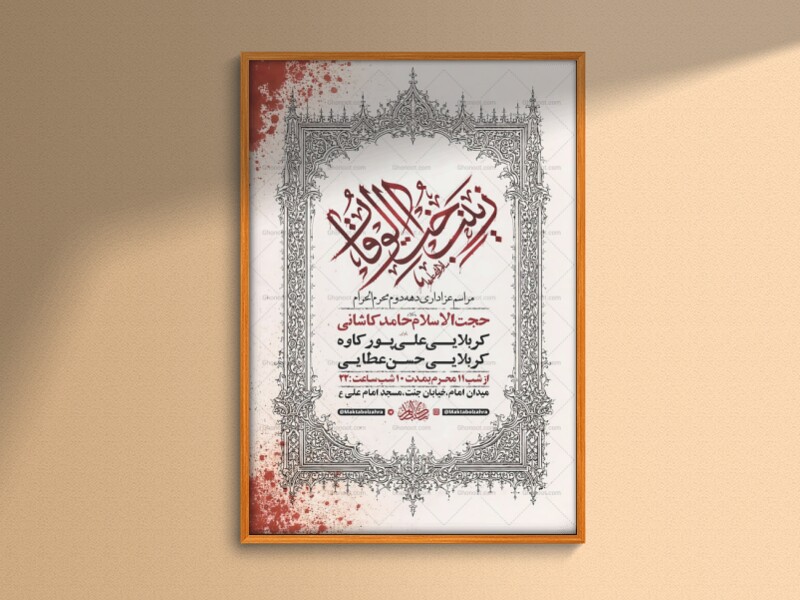 زینب اخت الوفا
مراسم عزاداری دهه دوم محرم الحرام
حجت الاسلام حامد کاشانی
کربلایی علی پور کاوه
کربلایی حسن عطایی
از شب ۱۱ محرم بمدت ۱۰ شب ساعت: ۲۲
میدان امام، خیابان جنت، مسجد امام علی ع
@Maktabolzahra @Maktabolzahra
Ghonoot.com